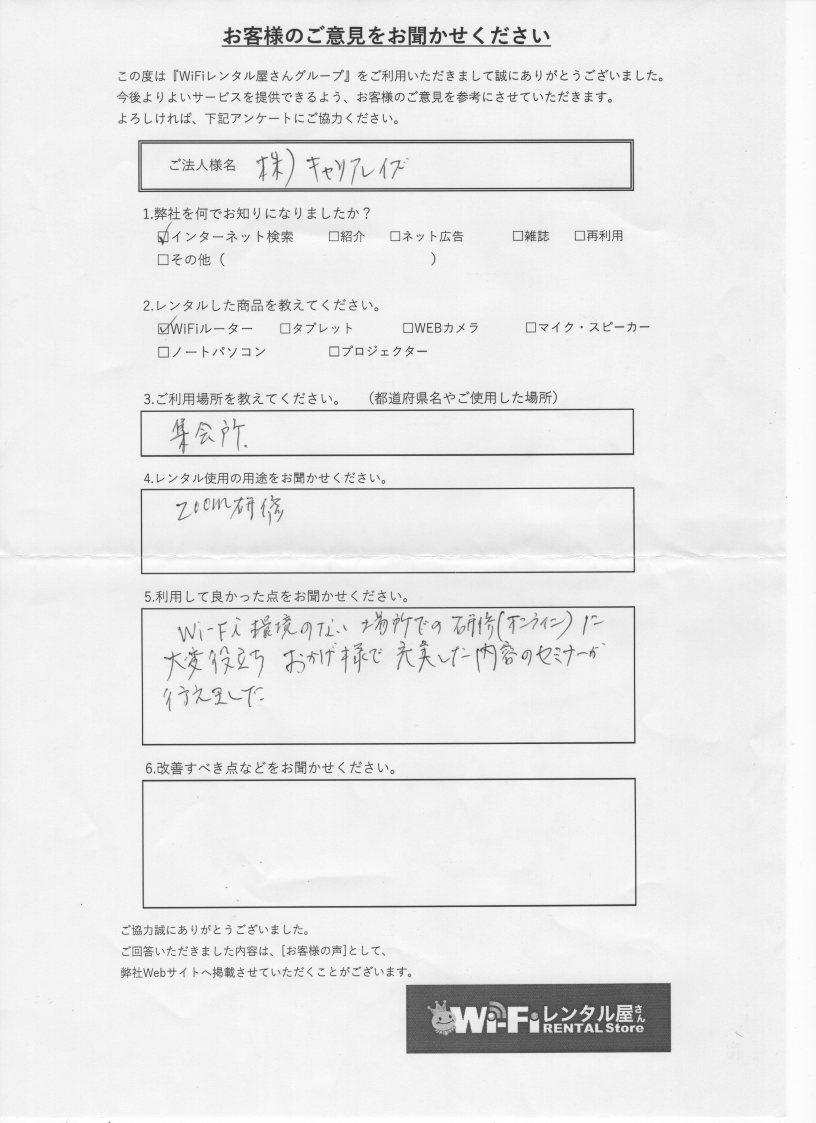 お客様のご意見をお聞かせください
この度は『WiFiレンタル屋さんグループ』をご利用いただきまして誠にありがとうございました。
今後よりよいサービスを提供できるよう、お客様のご意見を参考にさせていただきます。
よろしければ、下記アンケートにご協力ください。
ご法人様名 株)キャリアレイズ
1.弊社を何でお知りになりましたか？
☑インターネット検索 □紹介 □ネット広告 □雑誌 □再利用
□その他（ ）
2.レンタルした商品を教えてください。
☑WiFiルーター □タブレット □WEBカメラ □マイク・スピーカー
□ノートパソコン □プロジェクター
3.ご利用場所を教えてください。 （都道府県名やご使用した場所）
集会所.
4.レンタル使用の用途をお聞かせください。
zoom研修
5.利用して良かった点をお聞かせください。
Wi-Fi環境のない場所での研修(オンライン)に
大変役立ち おかげ様で充実した内容のセミナーが
行えました
6.改善すべき点などをお聞かせください。
ご協力誠にありがとうございました。
ご回答いただきました内容は、[お客様の声]として、
弊社Webサイトへ掲載させていただくことがございます。
Wi-Fiレンタル屋さん
RENTAL Store